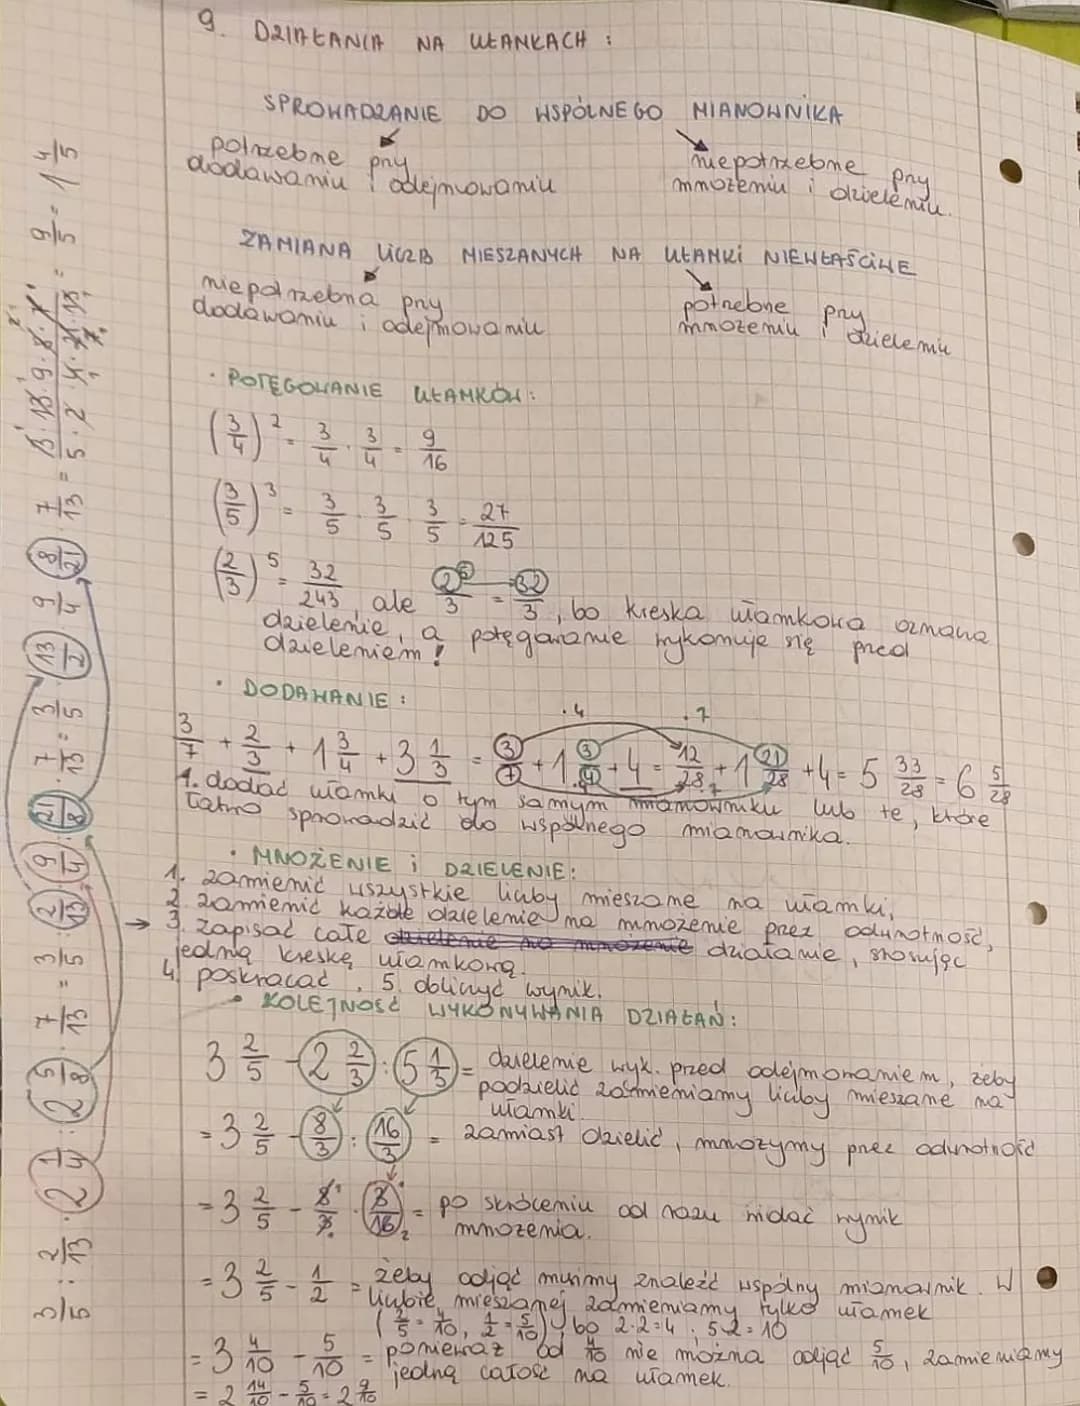 9. DZIAŁANIA NA UŁAMKACH :
SPROWADZANIE DO WSPÓLNEGO MIANOWNIKA
potrzebne przy dodawaniu i odejmowaniu
niepotrzebne przy mnożeniu i dzieleniu.
ZAMIANA LICZB MIESZANYCH NA UŁAMKI NIEWŁAŚCIWE
niepotrzebna przy dodawaniu i odejmowaniu
potrzebne przy mnożeniu i dzieleniu
· POTĘGOWANIE UŁAMKÓW:
(3/4)² = 3/4 · 3/4 = 9/16
(3/5)³ = 3/5 · 3/5 · 3/5 = 27/125
(2/3)⁵ = 32/243, ale 2⁵/3 = 32/3, bo kreska ułamkowa oznacza
dzielenie, a potęgowanie wykonuje się przed
dzieleniem!
· DODAWANIE :
· 4 · 7
3/7 + 2/3 + 1 3/4 + 3 1/3 = 3/7 + 1 3/4 + 4 = 12/28 + 1 21/28 + 4 = 5 33/28 = 6 5/28
1. dodać ułamki o tym samym mianowniku lub te, które
łatwo sprowadzić do wspólnego mianownika.
· MNOŻENIE i DZIELENIE:
1. zamienić wszystkie liczby mieszane na ułamki,
2. zamienić każde dzielenie na mnożenie przez odwrotność,
→ 3. zapisać całe dzielenie na mnożenie działanie, stosując
jedną kreskę ułamkową.
4. poskracać, 5. obliczyć wynik.
· KOLEJNOŚĆ WYKONYWANIA DZIAŁAŃ:
3 2/5 - 2 2/3 : 5 1/3 = dzielenie wyk. przed odejmowaniem, żeby
podzielić zamieniamy liczby mieszane na
ułamki
= 3 2/5 - 8/3 : 16/3 = zamiast dzielić, mnożymy przez odwrotność
= 3 2/5 - 8/3 · 3/16 = po skróceniu od razu widać wynik
mnożenia.
= 3 2/5 - 1/2 = żeby odjąć musimy znaleźć wspólny mianownik. W
liczbie mieszanej zamieniamy tylko ułamek
(2/5 = 4/10, 1/2 = 5/10), bo 2·2=4, 5·2=10
= 3 4/10 - 5/10 = ponieważ od 4/10 nie można odjąć 5/10, zamieniamy
jedną całość na ułamek.
= 2 14/10 - 5/10 = 2 9/10
3/5 : 2/13 · 2 1/4 : 2 5/8 · 7/13 = 3/5 : 2/13 · 9/4 : 21/8 · 7/13 = 3/5 · 13/2 · 9/4 · 8/21 · 7/13 = 3·13·9·8·7/5·2·4·21·13 = 9/5 = 1 4/5